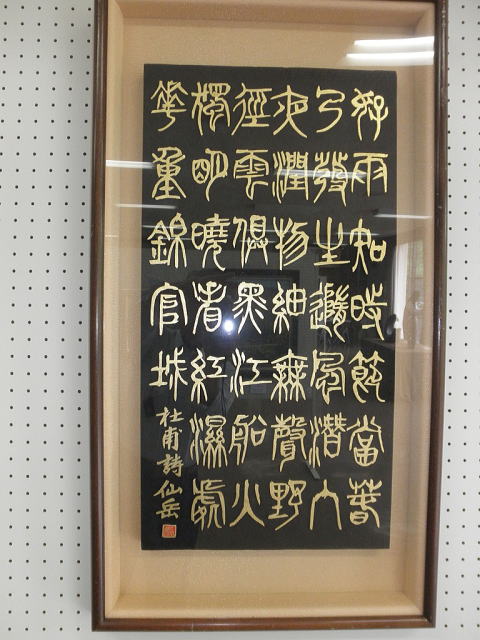 好雨知時節當春
乃發生隨風潛入
夜潤物細無聲野
徑雲俱黑江船火
獨明曉看紅濕處
花重錦官城
杜甫詩仙岳